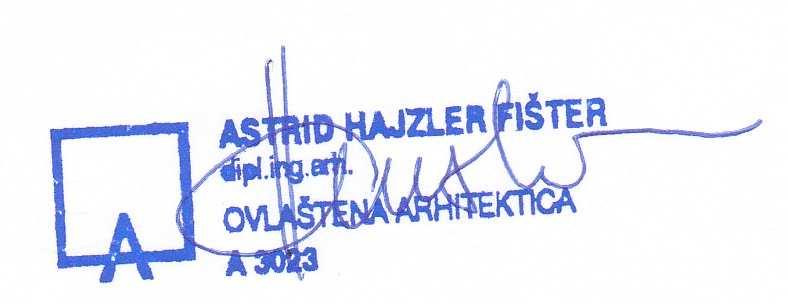 ASTRID HAJZLER FIŠTER
dipl.ing.arh.
OVLAŠTENA ARHITEKTICA
A 3023
A